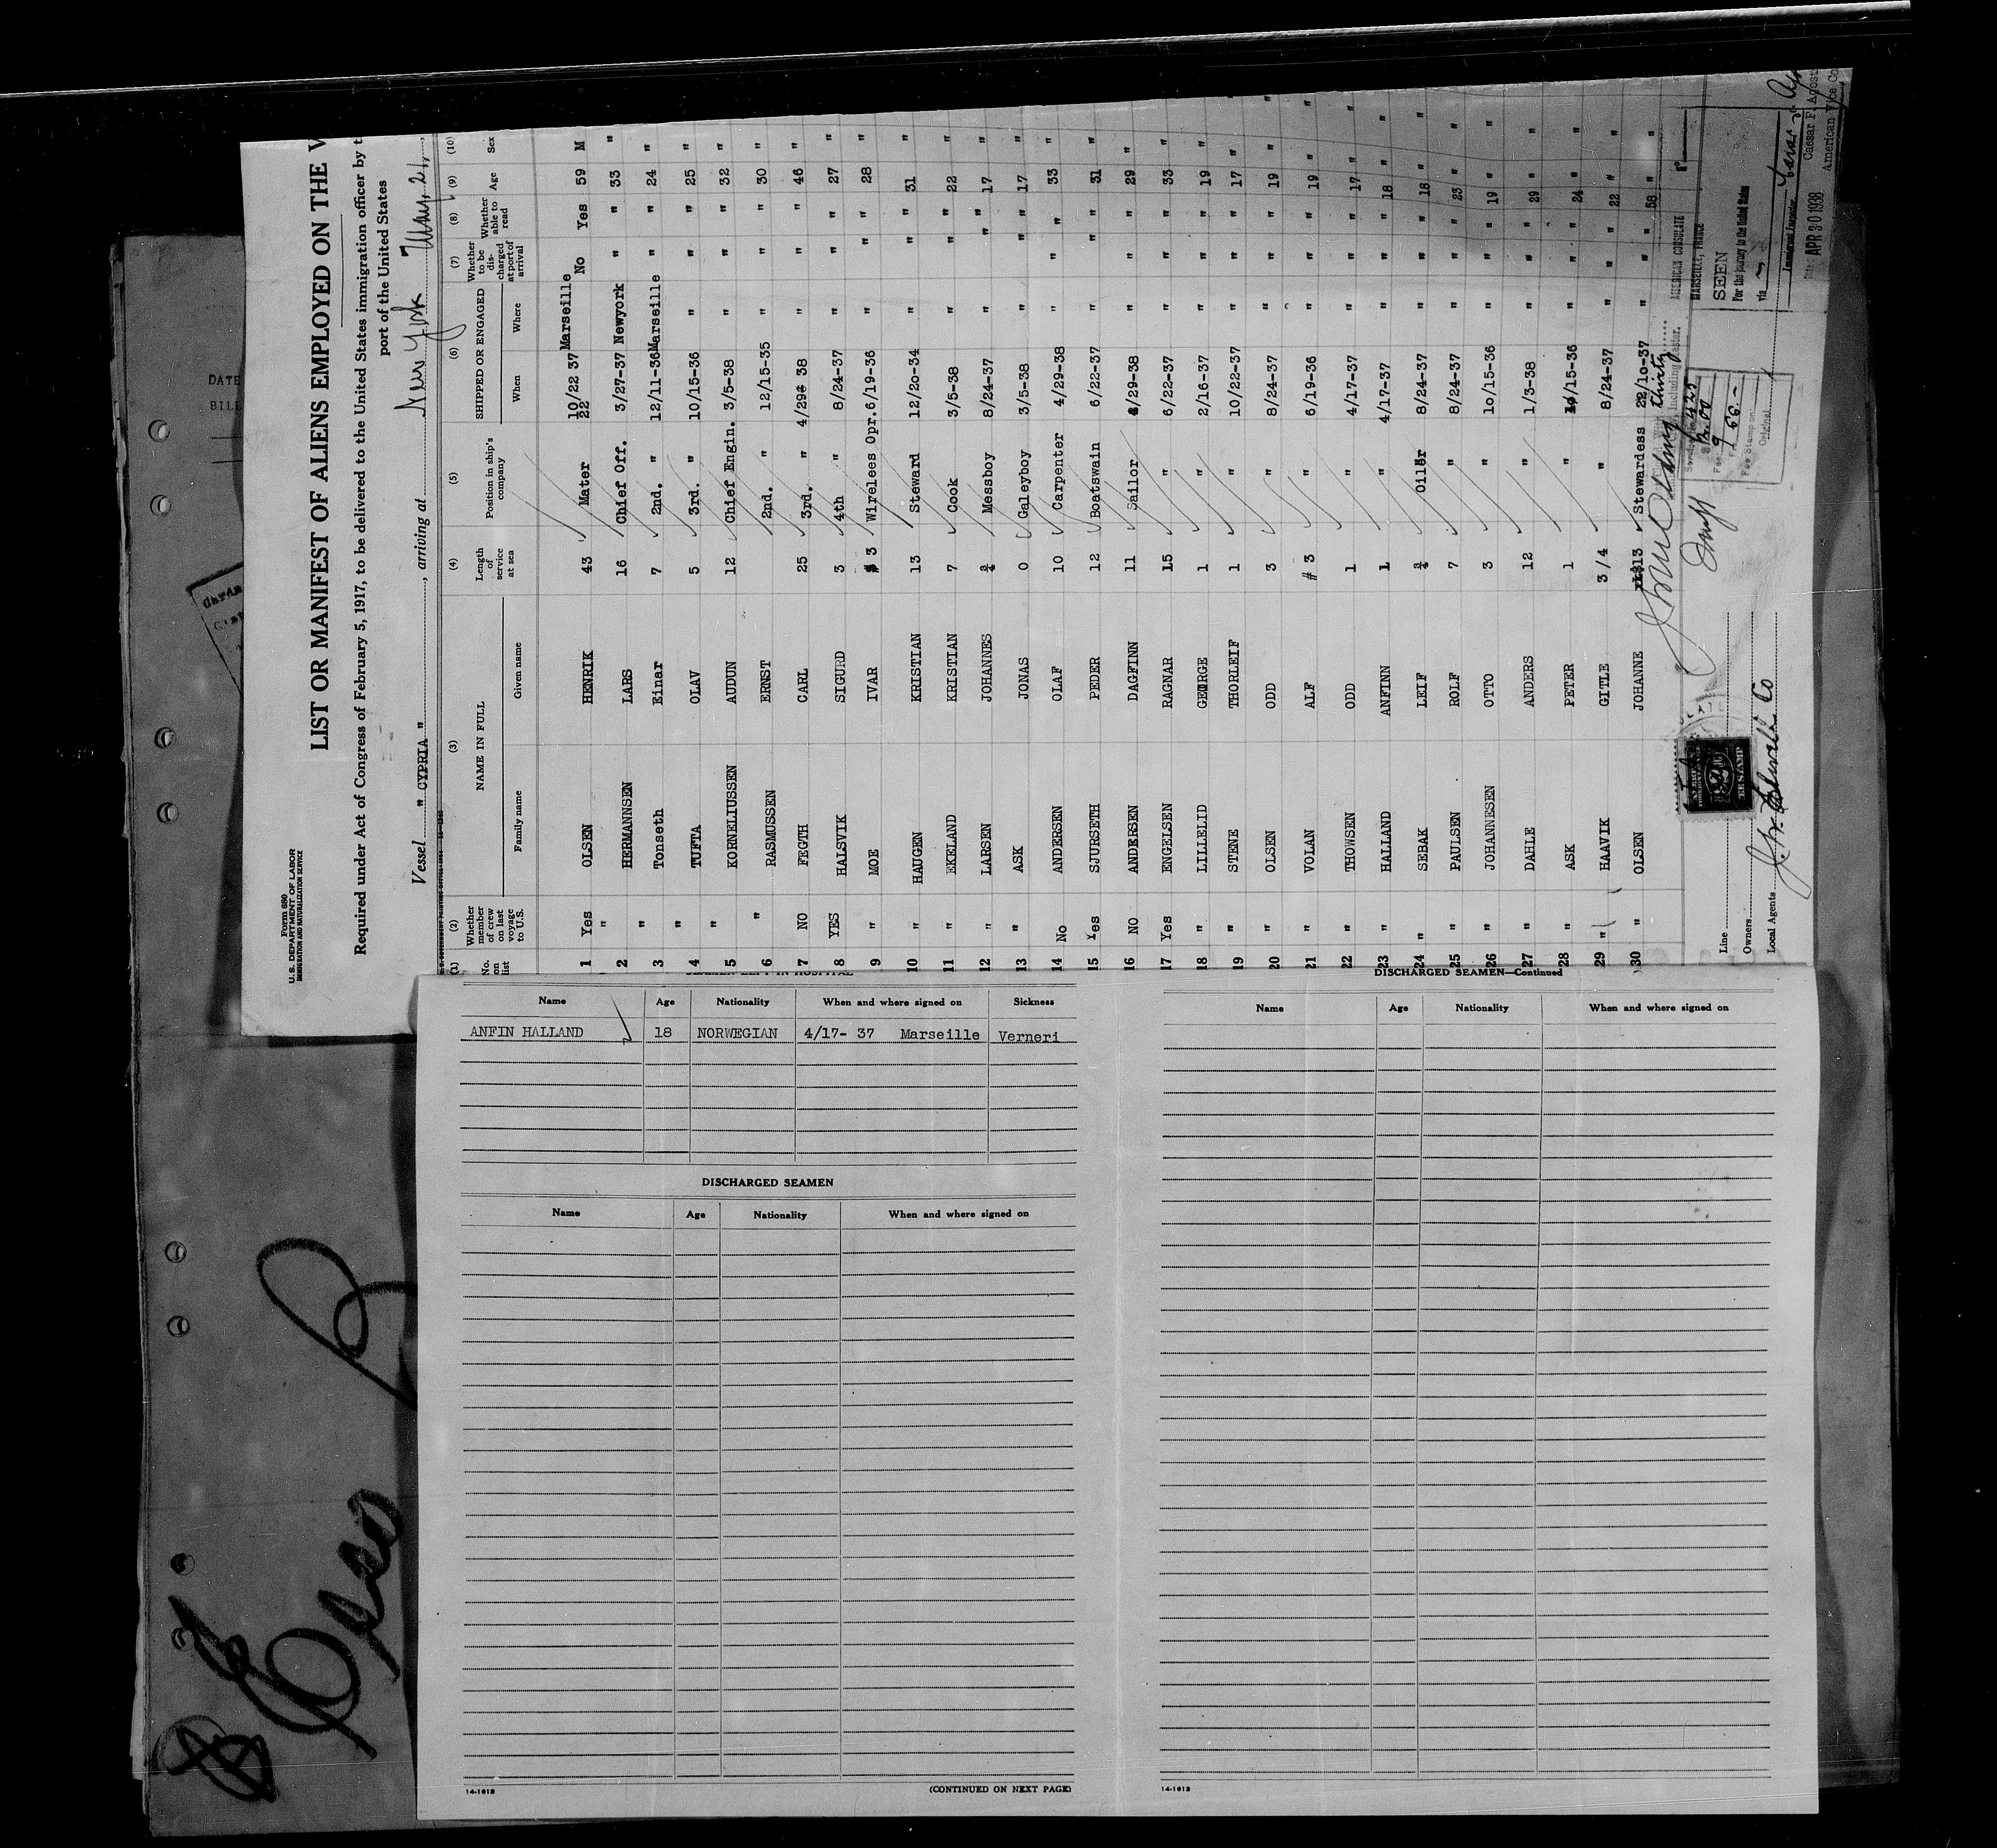 Form 680
U.S. DEPARTMENT OF LABOR
IMMIGRATION AND NATURALIZATION SERVICE
LIST OR MANIFEST OF ALIENS EMPLOYED ON THE V
Required under Act of Congress of February 5, 1917, to be delivered to the United States immigration officer by t
port of the United States
Vessel " CYPRIA ", arriving at New York May, 21,
(1) (2) (3) (4) (5) (6) (7) (8) (9) (10)
No. on list Whether member of crew on last voyage to U.S. NAME IN FULL Family name Given name Length of service at sea Position in ship's company SHIPPED OR ENGAGED When Where Whether to be dis-charged at port of arrival Whether able to read Age Sex
1 Yes OLSEN HENRIK 43 Mater 10/22 37 Marseille No Yes 59 M
2 " HERMANNSEN LARS 16 Chief Off. 3/27-37 Newyork " " 33 "
3 " Tonseth Einar 7 2nd. " 12/11-36 Marseille " " 24 "
4 " TUFTA OLAV 5 3rd. " 10/15-36 " " " 25 "
5 " KORNELIUSSEN AUDUN 12 Chief Engin. 3/5-38 " " " 32 "
6 " RASMUSSEN ERNST 2nd. " 12/15-35 " " " 30 "
7 NO FEGTH CARL 25 3rd. " 4/29 38 " " " 46 "
8 YES HALSVIK SIGURD 3 4th " 8/24-37 " " " 27 "
9 " MOE IVAR 3 Wirelees Opr. 6/19-36 " " " 28 "
10 " HAUGEN KRISTIAN 13 Steward 12/2o-34 " " " 31 "
11 " EKELAND KRISTIAN 7 Cook 3/5-38 " " " 22 "
12 " LARSEN JOHANNES ¾ Messboy 8/24-37 " " " 17 "
13 " ASK JONAS 0 Galeyboy 3/5-38 " " " 17 "
14 No ANDERSEN OLAF 10 Carpenter 4/29-38 " " " 33 "
15 Yes SJURSETH PEDER 12 Boatswain 6/22-37 " " " 31 "
16 NO ANDERSEN DAGFINN 11 Sailor 4/29-38 " " " 29 "
17 Yes ENGELSEN RAGNAR 15 " 6/22-37 " " " 33 "
18 " LILLELID GEORGE 1 " 2/16-37 " " " 19 "
19 " STENE THORLEIF 1 " 10/22-37 " " " 17 "
20 " OLSEN ODD 3 " 8/24-37 " " " 19 "
21 " VOLAN ALF 3 " 6/19-36 " " " 19 "
22 " THOWSEN ODD 1 " 4/17-37 " " " 17 "
23 " HALLAND ANFINN 1 " 4/17-37 " " " 18 "
24 " SEBAK LEIF ¾ Oiler 8/24-37 " " " 18 "
25 " PAULSEN ROLF 7 " 8/24-37 " " " 23 "
26 " JOHANNESEN OTTO 3 " 1o/15-36 " " " 19 "
27 " DAHLE ANDERS 12 " 1/3-38 " " " 29 "
28 " ASK PETER 1 " 10/15-36 " " " 24 "
29 " HAAVIK GITLE 3/4 " 8/24-37 " " " 22 "
30 " OLSEN JOHANNE 13 Stewardess 22/1o-37 " " " 58 "
Line
Owners
Local Agents
thirty
including master.
AMERICAN CONSULATE
MARSEILLE, FRANCE
SEEN
For the journey to the United States
via
APR 30 1938
Immigrant Inspector
Caesar F. Agost
American Vice Co
Fee Stamp on
Original
FEE STAMP
DATE
BILL
Esso
SEAMEN LEFT IN HOSPITAL
Name Age Nationality When and where signed on Sickness
ANFIN HALLAND 18 NORWEGIAN 4/17- 37 Marseille Verneri
DISCHARGED SEAMEN
Name Age Nationality When and where signed on
14-1613 (CONTINUED ON NEXT PAGE)
DISCHARGED SEAMEN—Continued
Name Age Nationality When and where signed on
14-1613